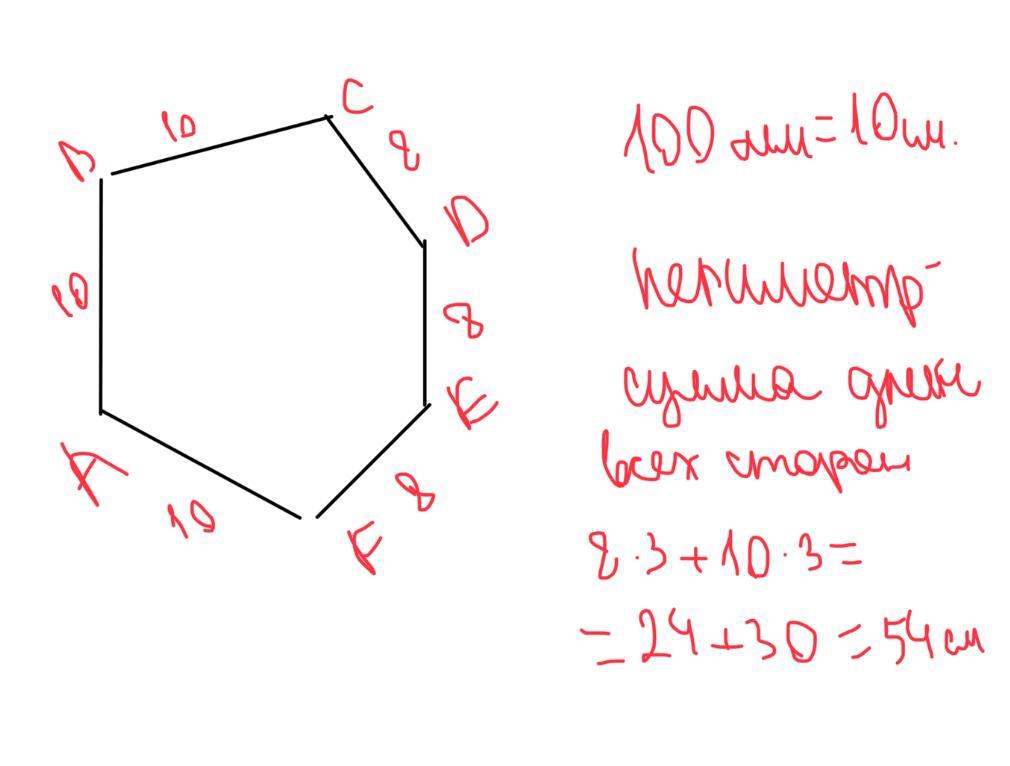 B
10
C
8
D
10
8
E
A
10
8
F
100 мм = 10 см.
периметр -
сумма длин
всех сторон
8 · 3 + 10 · 3 =
= 24 + 30 = 54 см